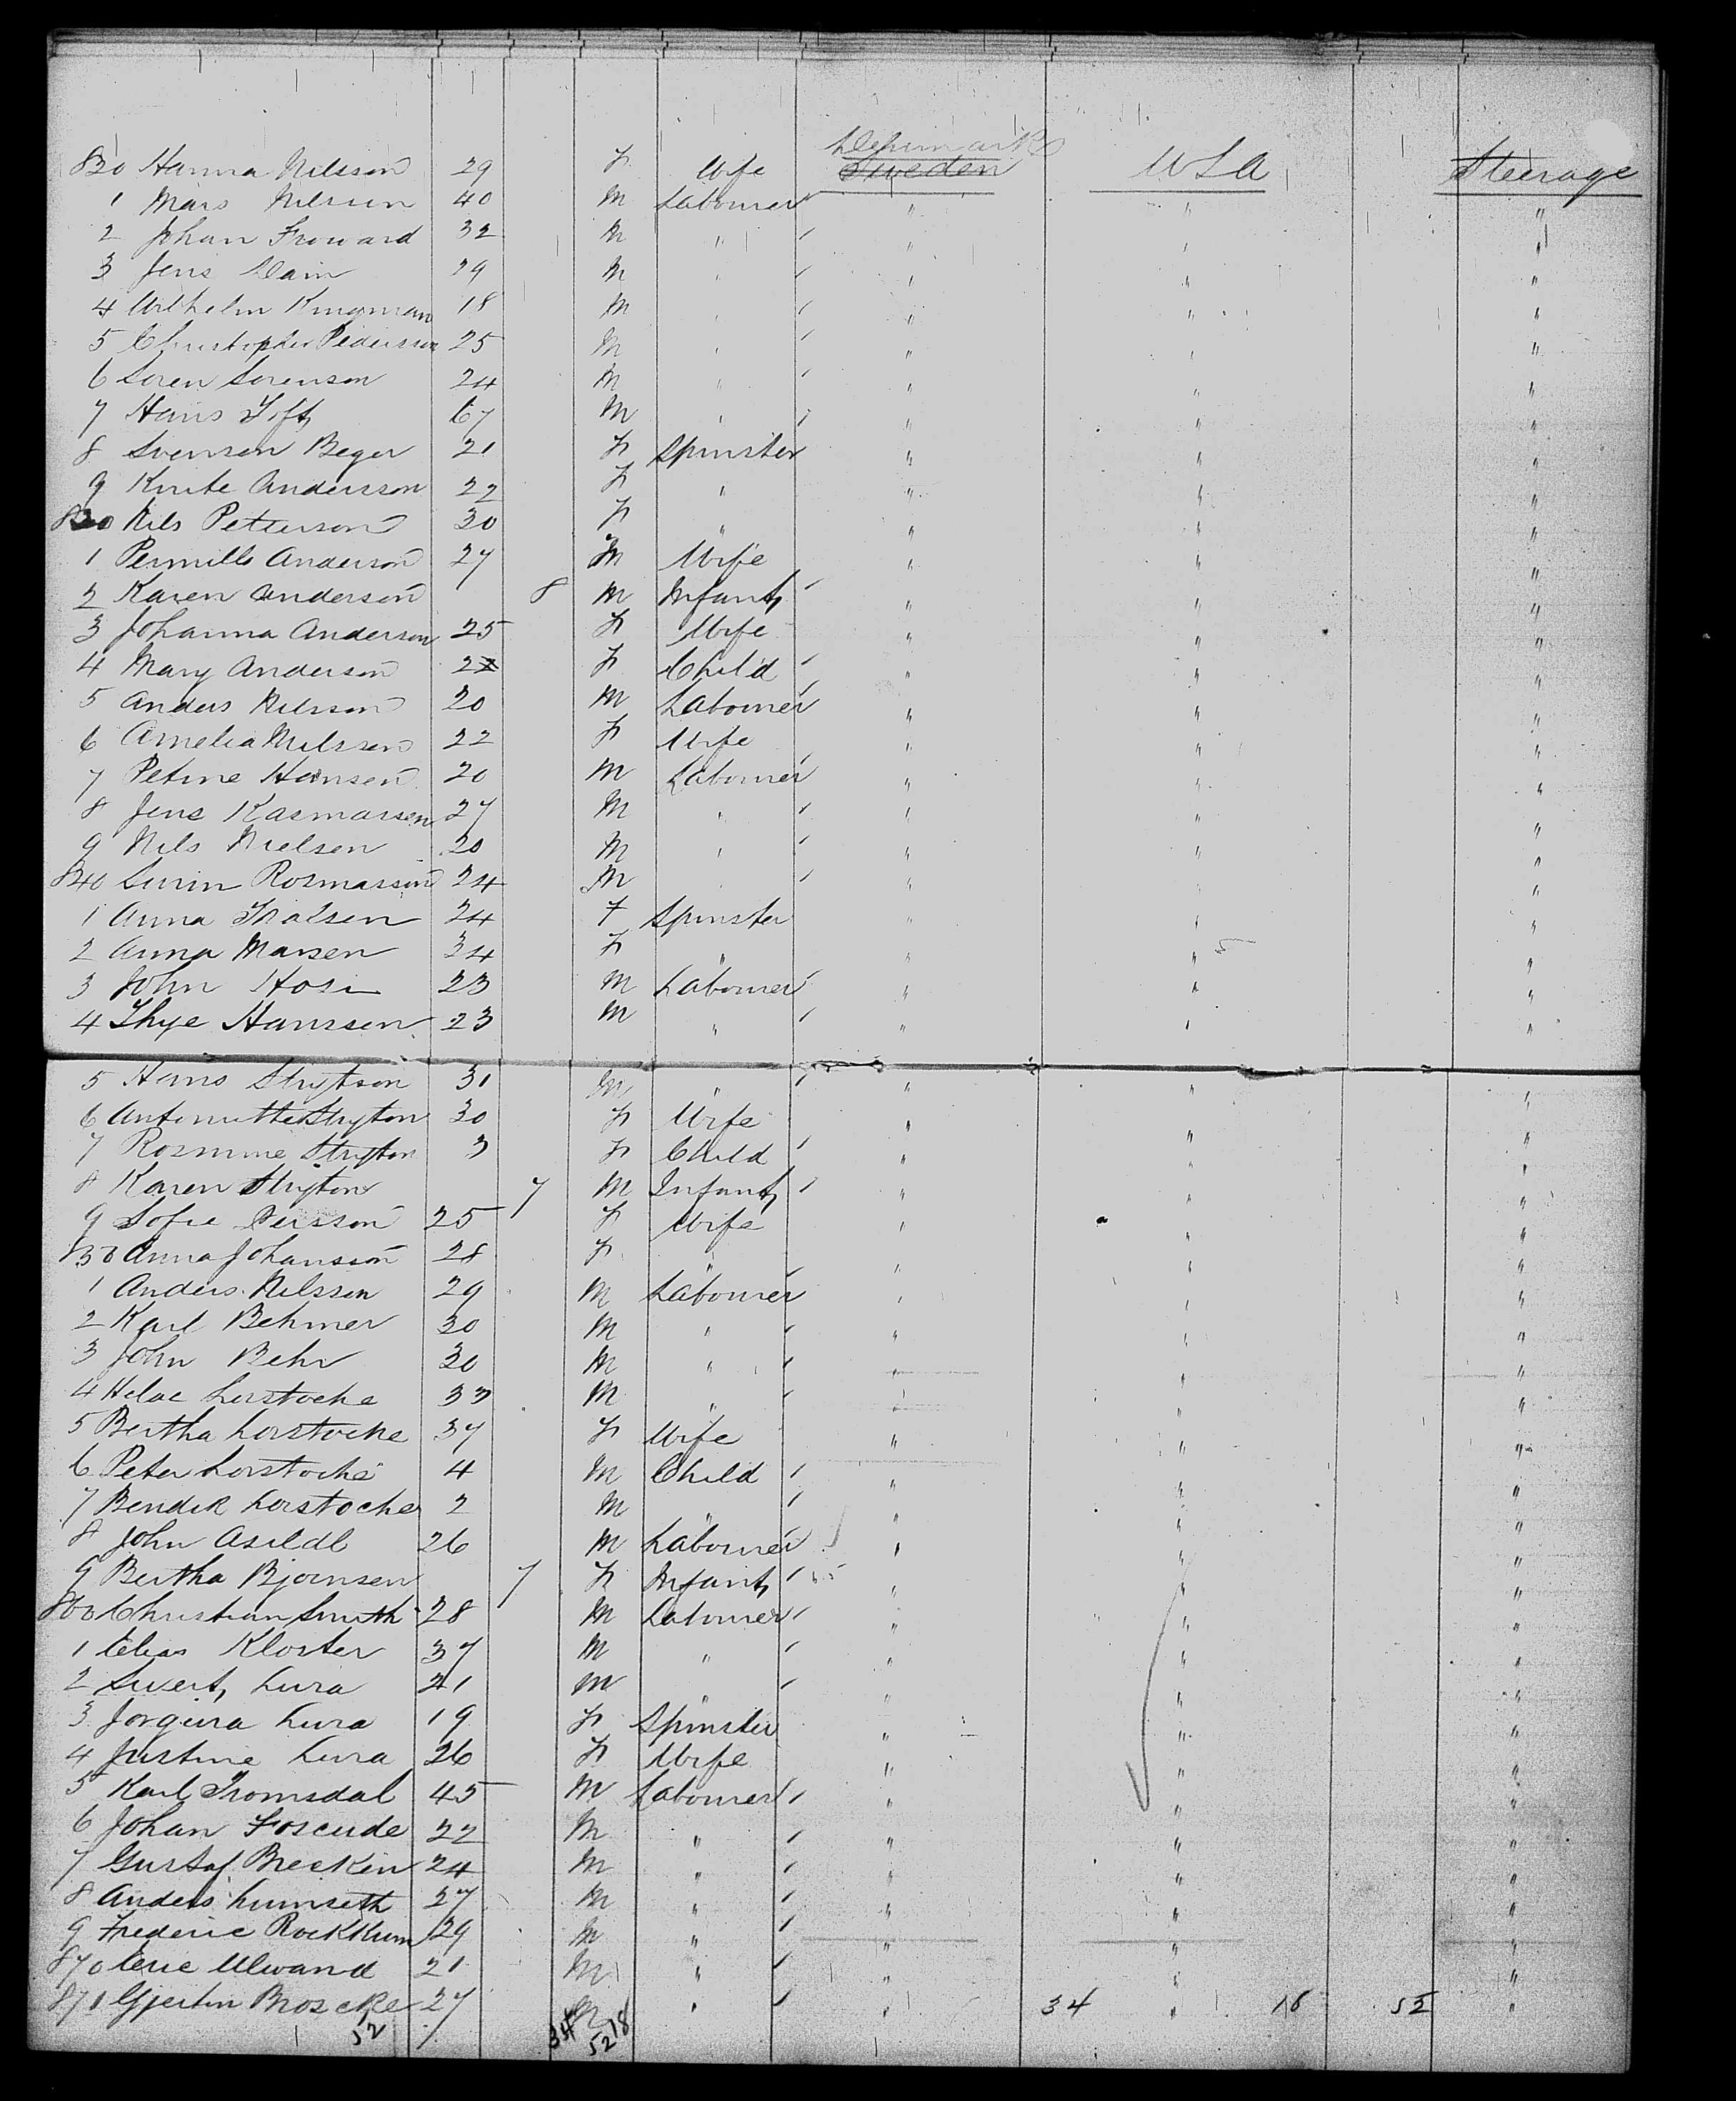 Denmark
820 Hanna Nilsson 29 F Wife Sweden USA Steerage
1 Mars Nilsson 40 M Labourer " " "
2 Johan Froward 32 M " " " "
3 Jens Dain 29 M " " " "
4 Wilhelm Kingman 18 M " " " "
5 Christopher Pedersson 25 M " " " "
6 Soren Sorenson 24 M " " " "
7 Hans Toft 67 M " " " "
8 Svensen Beger 21 F Spinster " " "
9 Knite Andersson 22 F " " " "
830 Nils Petterson 30 F " " " "
1 Pernille Anderson 27 M Wife " " "
2 Karen Anderson 8 M Infant " " "
3 Johanna Anderson 25 F Wife " " "
4 Mary Anderson 2 F Child " " "
5 Anders Nilsson 20 M Labourer " " "
6 Amelia Nilssen 22 F Wife " " "
7 Petine Hansen 20 M Labourer " " "
8 Jens Rasmassen 27 M " " " "
9 Nils Nielsen 20 M " " " "
840 Rosmassin 24 M " " " "
1 Anna 24 F Spinster " " "
2 Anna Marsen 34 F " " " "
3 John Hosi 23 M Labourer " " "
4 Thye Hanssen 23 M " " " "
5 Hans Strytson 31 M " " " "
6 Antoinette Stryton 30 F Wife " " "
7 Rosmine Stryton 3 F Child " " "
8 Karen Stryton 7 M Infant " " "
9 Sofie Persson 25 F Wife " " "
850 Anna Johansson 28 F " " " "
1 Anders Nilsson 29 M Labourer " " "
2 Karl Behmer 30 M " " " "
3 John Behr 30 M " " " "
4 Helae Lorstocke 33 M " " " "
5 Bertha Lorstocke 37 F Wife " " "
6 Peter Lorstocke 4 M Child " " "
7 Bendik Lorstocke 2 M " " " "
8 John Asildl 26 M Labourer " " "
9 Bertha Bjornsen 7 F Infant " " "
860 Christian Smith 28 M Labourer " " "
1 Elias Kloster 37 M " " " "
2 Sivert Lura 21 M " " " "
3 Jorgina Lura 19 F Spinster " " "
4 Justine Lura 26 F Wife " " "
5 Karl Tromsdal 45 M Labourer " " "
6 Johan Foscude 22 M " " " "
7 Gustaf Breckin 24 M " " " "
8 Anders Lumseth 27 M " " " "
9 Frederic Rockklum 29 M " " " "
870 Eric Ulvand 21 M " " " "
871 Gjertin Broscke 27 M " " 34 " 18 52 "
52 34 52 18